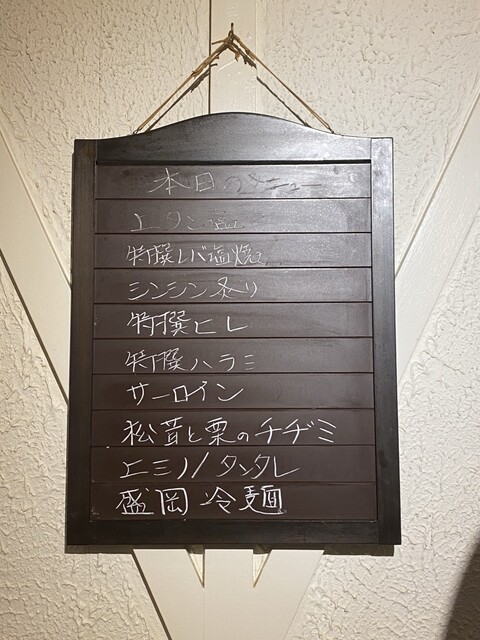 本日のメニュー
上タン塩
特撰レバ塩焼
シンシン炙り
特撰ヒレ
特撰ハラミ
サーロイン
松茸と栗のチヂミ
エミノ/タンタレ
盛岡冷麺